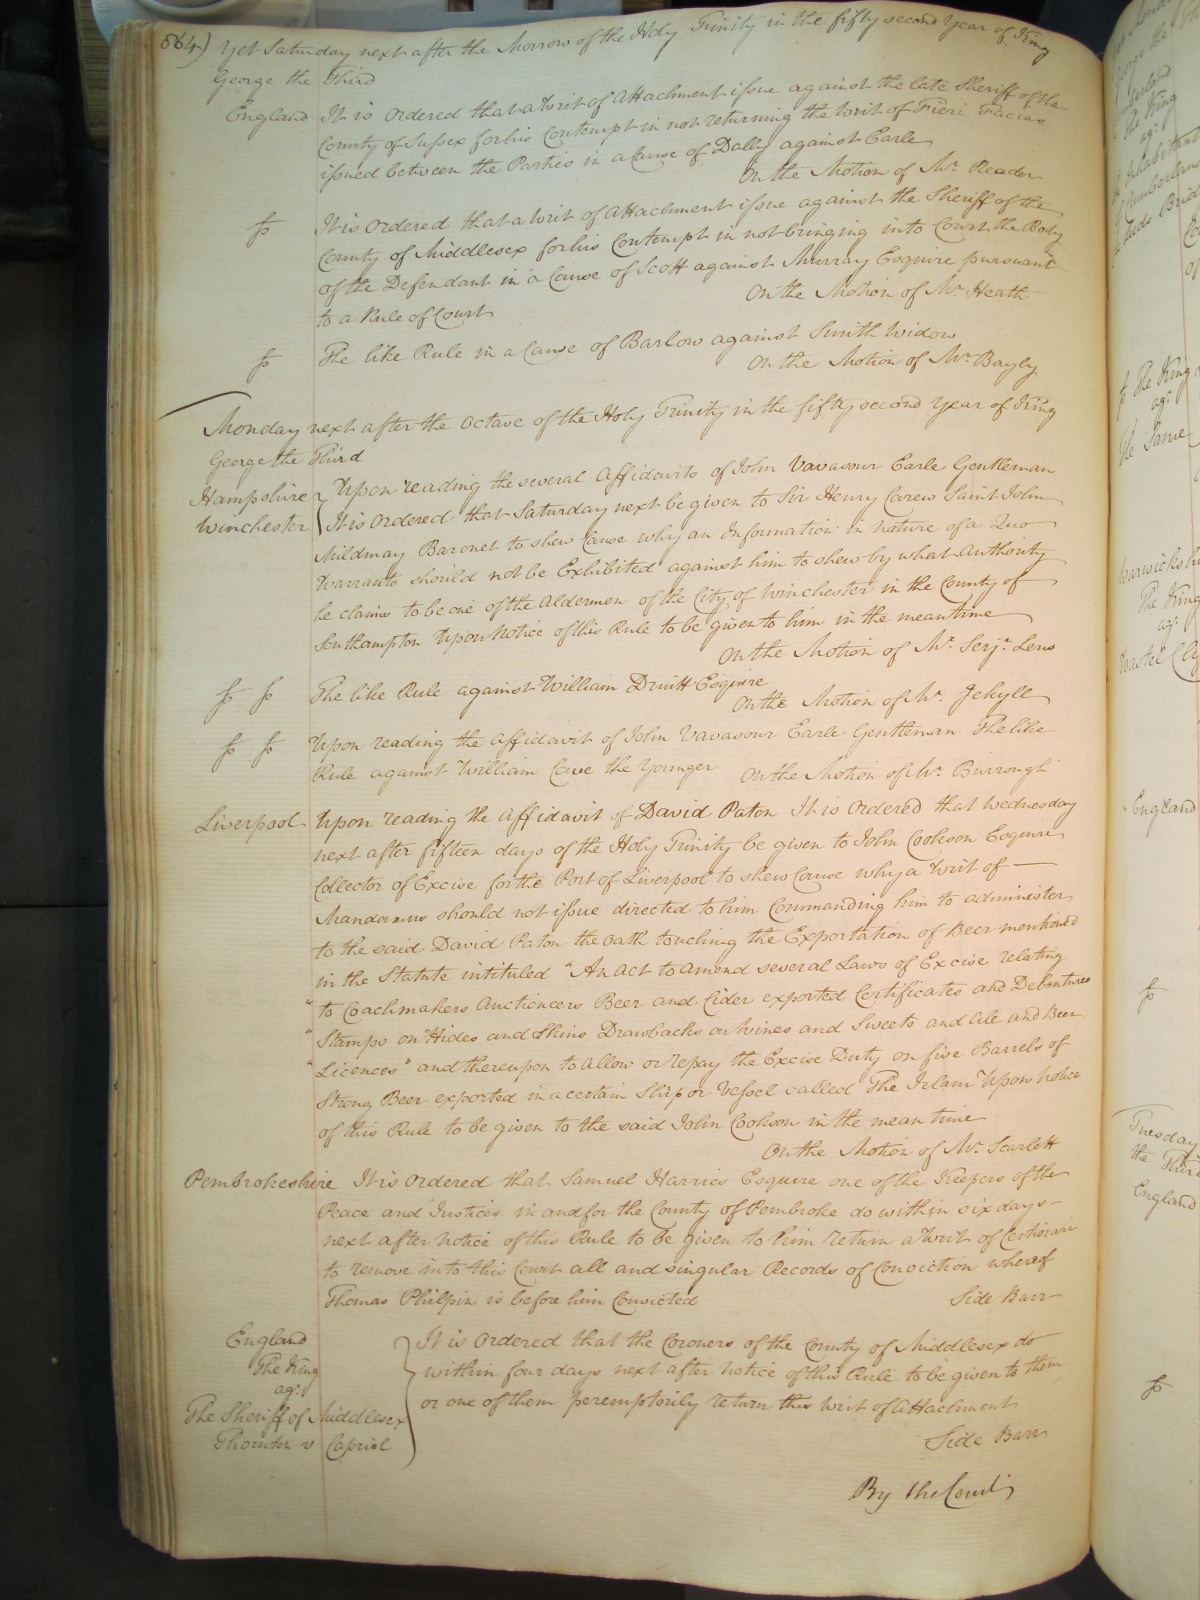 864) Yet Saturday next after the Morrow of the Holy Trinity in the fifty second Year of King
George the Third
England It is ordered that a Writ of Attachment issue against the late Sheriff of the
County of Sussex for his Contempt in not returning the Writ of Fieri Facias
issued between the Parties in a Cause of Dally against Earle
On the Motion of Mr. Reader
It is ordered that a Writ of Attachment issue against the Sheriff of the
County of Middlesex for his Contempt in not bringing into Court the Body
of the Defendant in a Cause of Scott against Murray Esquire pursuant
to a Rule of Court
On the Motion of Mr. Heath
The like Rule in a Cause of Barlow against Smith Widow
On the Motion of Mr. Bayly
Monday next after the Octave of the Holy Trinity in the fifty second Year of King
George the Third
Hampshire Upon reading the several Affidavits of John Vavasour Earle Gentleman
Winchester It is ordered that Saturday next be given to Sir Henry Carew Saint John
Mildmay Baronet to shew Cause why an Information in nature of a Quo
Warranto should not be Exhibited against him to shew by what Authority
he claims to be one of the Aldermen of the City of Winchester in the County of
Southampton Upon Notice of this Rule to be given to him in the meantime
On the Motion of Mr. Serjt. Lens
The like Rule against William Druitt Esquire
On the Motion of Mr. Jekyll
Upon reading the Affidavit of John Vavasour Earle Gentleman The like
Rule against William Cave the Younger On the Motion of Mr. Burrough
Liverpool Upon reading the Affidavit of David Paton It is ordered that Wednesday
next after fifteen days of the Holy Trinity be given to John Cookson Esquire
Collector of Excise for the Port of Liverpool to shew Cause why a Writ of
Mandamus should not issue directed to him Commanding him to administer
to the said David Paton the Oath touching the Exportation of Beer mentioned
in the Statute intituled "An Act to amend several Laws of Excise relating
" to Coachmakers Auctioneers Beer and Cider exported Certificates and Debentures
" Stamps on Hides and Skins Drawbacks on Wines and Sweets and Ale and Beer
" Licences" and thereupon to allow or repay the Excise Duty on five Barrels of
Strong Beer exported in a certain Ship or Vessel called The Irlam Upon Notice
of this Rule to be given to the said John Cookson in the mean time
On the Motion of Mr. Scarlett
Pembrokeshire It is ordered that Samuel Harries Esquire one of the Keepers of the
Peace and Justices in and for the County of Pembroke do within six days
next after Notice of this Rule to be given to him return a Writ of Certiorari
to remove into this Court all and singular Records of Conviction whereof
Thomas Philpin is before him Convicted Side Barr
England It is ordered that the Coroners of the County of Middlesex do
The King within four days next after Notice of this Rule to be given to them
agt. or one of them peremptorily return this Writ of Attachment
The Sheriff of Middlesex
Thornton v Capriol Side Barr
By the Court